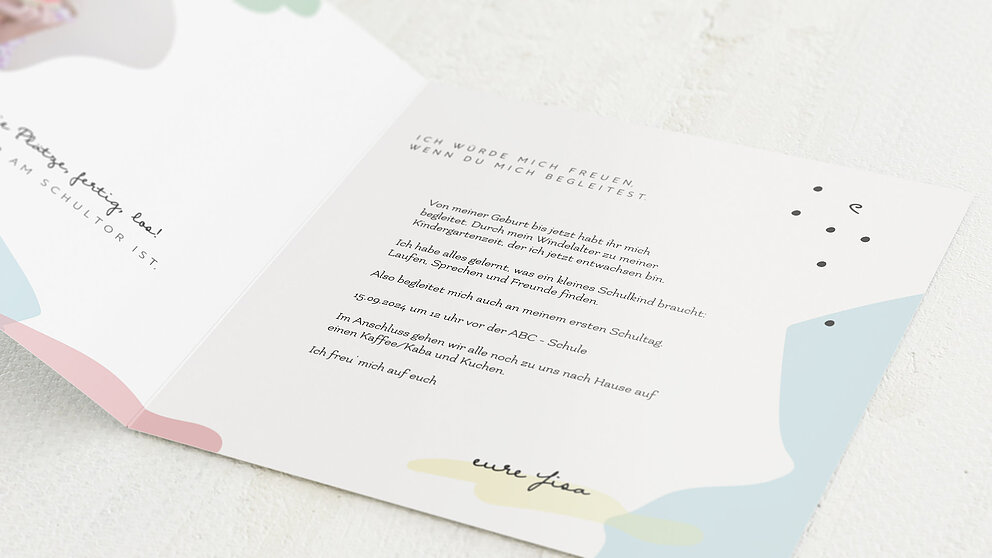 Plätze, fertig, los!
AM SCHULTOR IST.
ICH WÜRDE MICH FREUEN,
WENN DU MICH BEGLEITEST.
Von meiner Geburt bis jetzt habt ihr mich
begleitet. Durch mein Windelalter zu meiner
Kindergartenzeit, der ich jetzt entwachsen bin.
Ich habe alles gelernt, was ein kleines Schulkind braucht:
Laufen, Sprechen und Freunde finden.
Also begleitet mich auch an meinem ersten Schultag.
15.09.2024 um 12 uhr vor der ABC - Schule
Im Anschluss gehen wir alle noch zu uns nach Hause auf
einen Kaffee/Kaba und Kuchen.
Ich freu´mich auf euch
eure Lisa